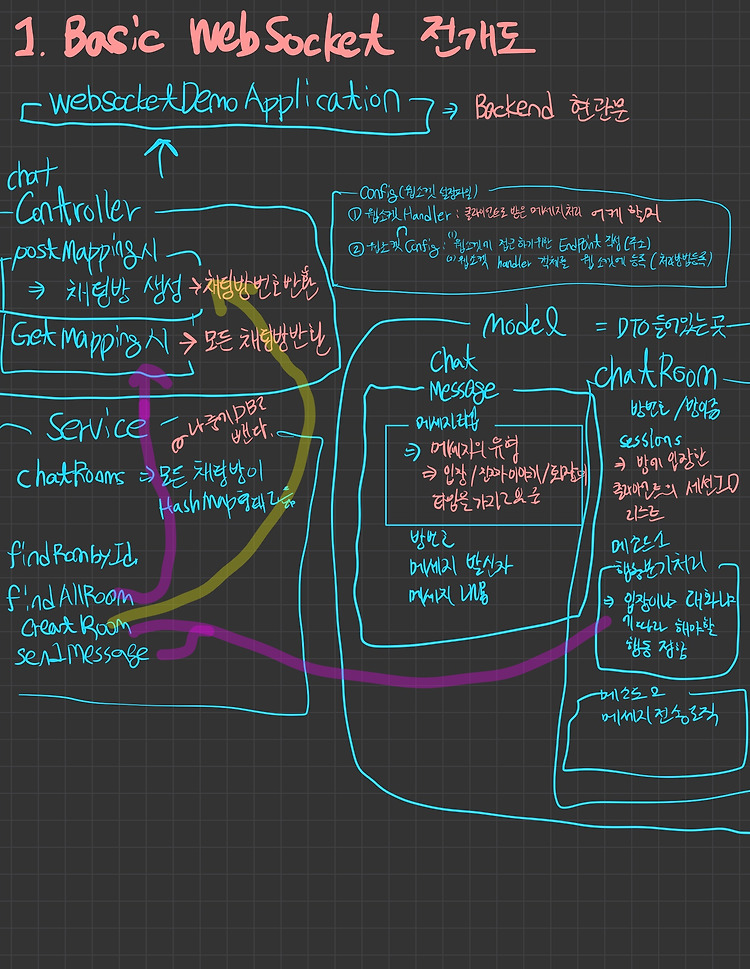 1. Basic WebSocket 전개도
websocketDemoApplication ⇒ Backend 현관문
chat
Controller
postMapping시
⇒ 채팅방 생성 → 채팅방번호반환
GetMapping시 → 모든 채팅방반환
Config (웹소켓 설정파일)
① 웹소켓 Handler : 클라이언트로 받은 메세지처리 어케 할지
② 웹소켓 Config : (1) 웹소켓에 접근하기위한 Endpoint 작성 (주소)
웹소켓 handler 객체를 웹소켓에 등록 (처리방법등록)
Service
나중에 DB로
뺀다.
chatRooms ⇒ 모든 채팅방이
HashMap형태로
findRoombyId
findAllRoom
creatRoom
sendMessage
model = DTO 들어있는 곳
chat
Message
메세지타입
⇒ 메세지의 유형
⇒ 입장/
타입을 가지고
방번호
메세지 발신자
메세지 내용
chatRoom
방번호 / 방이름
sessions
⇒ 방에 입장한
클라이언트의 세션ID
리스트
메소드1
행동분기처리
⇒ 입장이냐 대화냐
에 따라 해야할
행동 정함
메소드2
메세지 전송로직